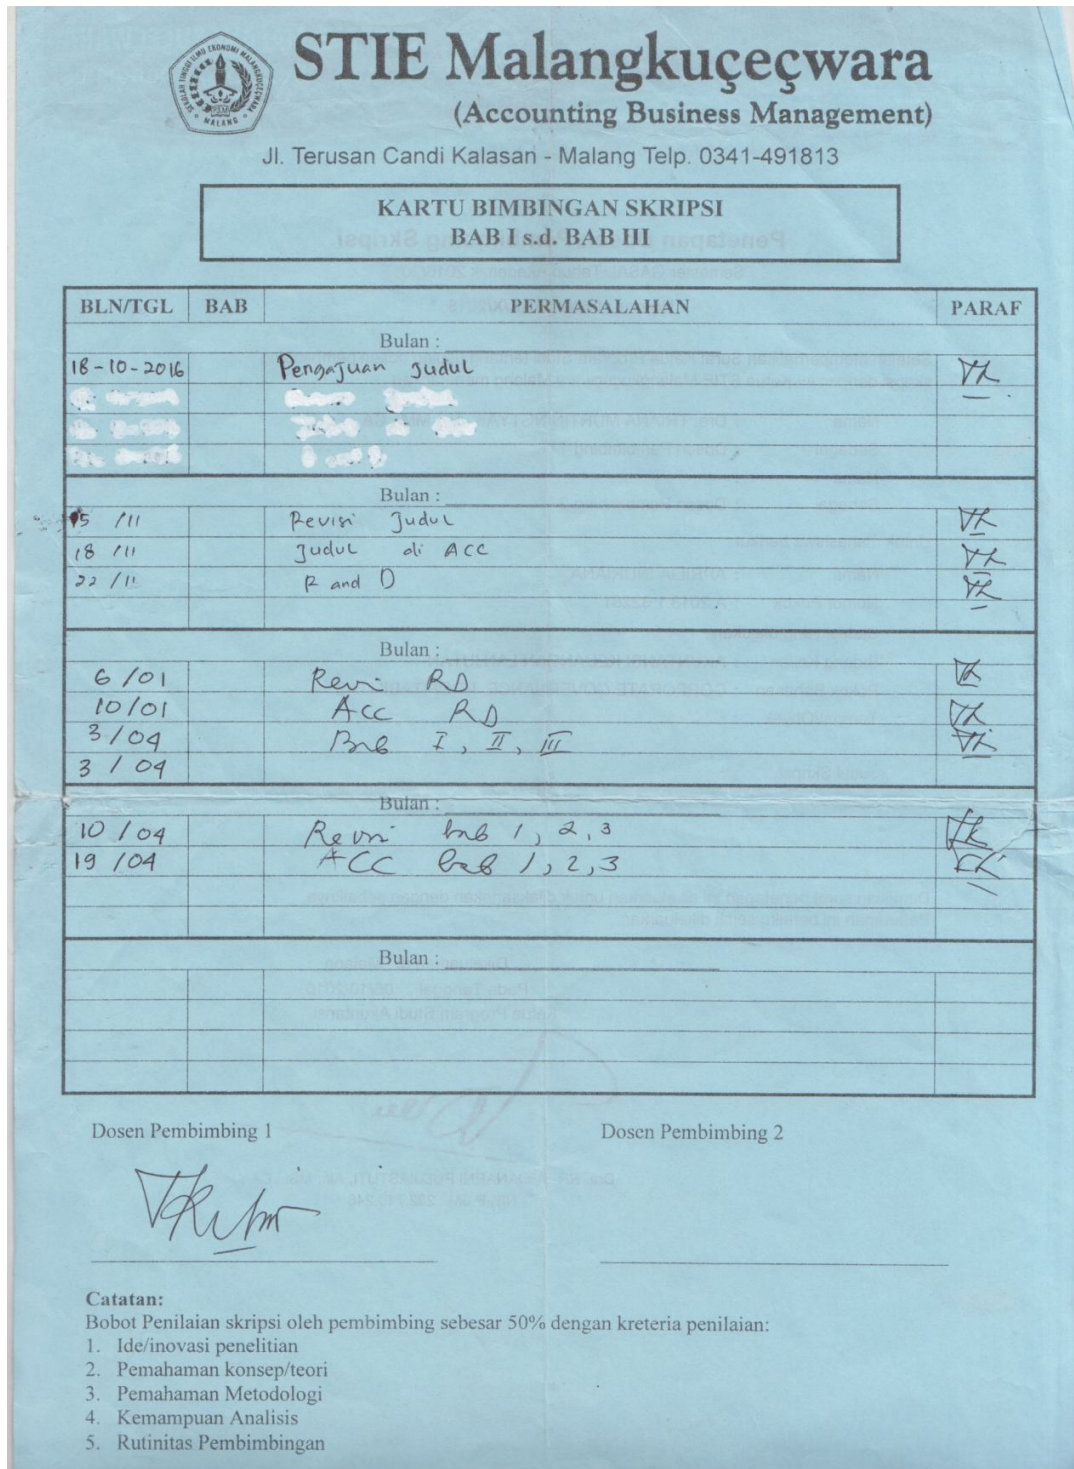 SEKOLAH TINGGI ILMU EKONOMI MALANGKUÇEÇWARA
MALANG
STIE Malangkuçeçwara
(Accounting Business Management)
Jl. Terusan Candi Kalasan - Malang Telp. 0341-491813
KARTU BIMBINGAN SKRIPSI
BAB I s.d. BAB III
BLN/TGL BAB PERMASALAHAN PARAF
Bulan :
18-10-2016 Pengajuan Judul
Bulan :
15 /11 Revisi Judul
18 /11 Judul di ACC
22 /11 R and D
Bulan :
6 /01 Revi RD
10/01 Acc RD
3/04 Bab I, II, III
3 / 04
Bulan :
10 /04 Revisi bab 1, 2, 3
19 /04 ACC bab 1, 2, 3
Bulan :
Dosen Pembimbing 1 Dosen Pembimbing 2
Catatan:
Bobot Penilaian skripsi oleh pembimbing sebesar 50% dengan kreteria penilaian:
1. Ide/inovasi penelitian
2. Pemahaman konsep/teori
3. Pemahaman Metodologi
4. Kemampuan Analisis
5. Rutinitas Pembimbingan